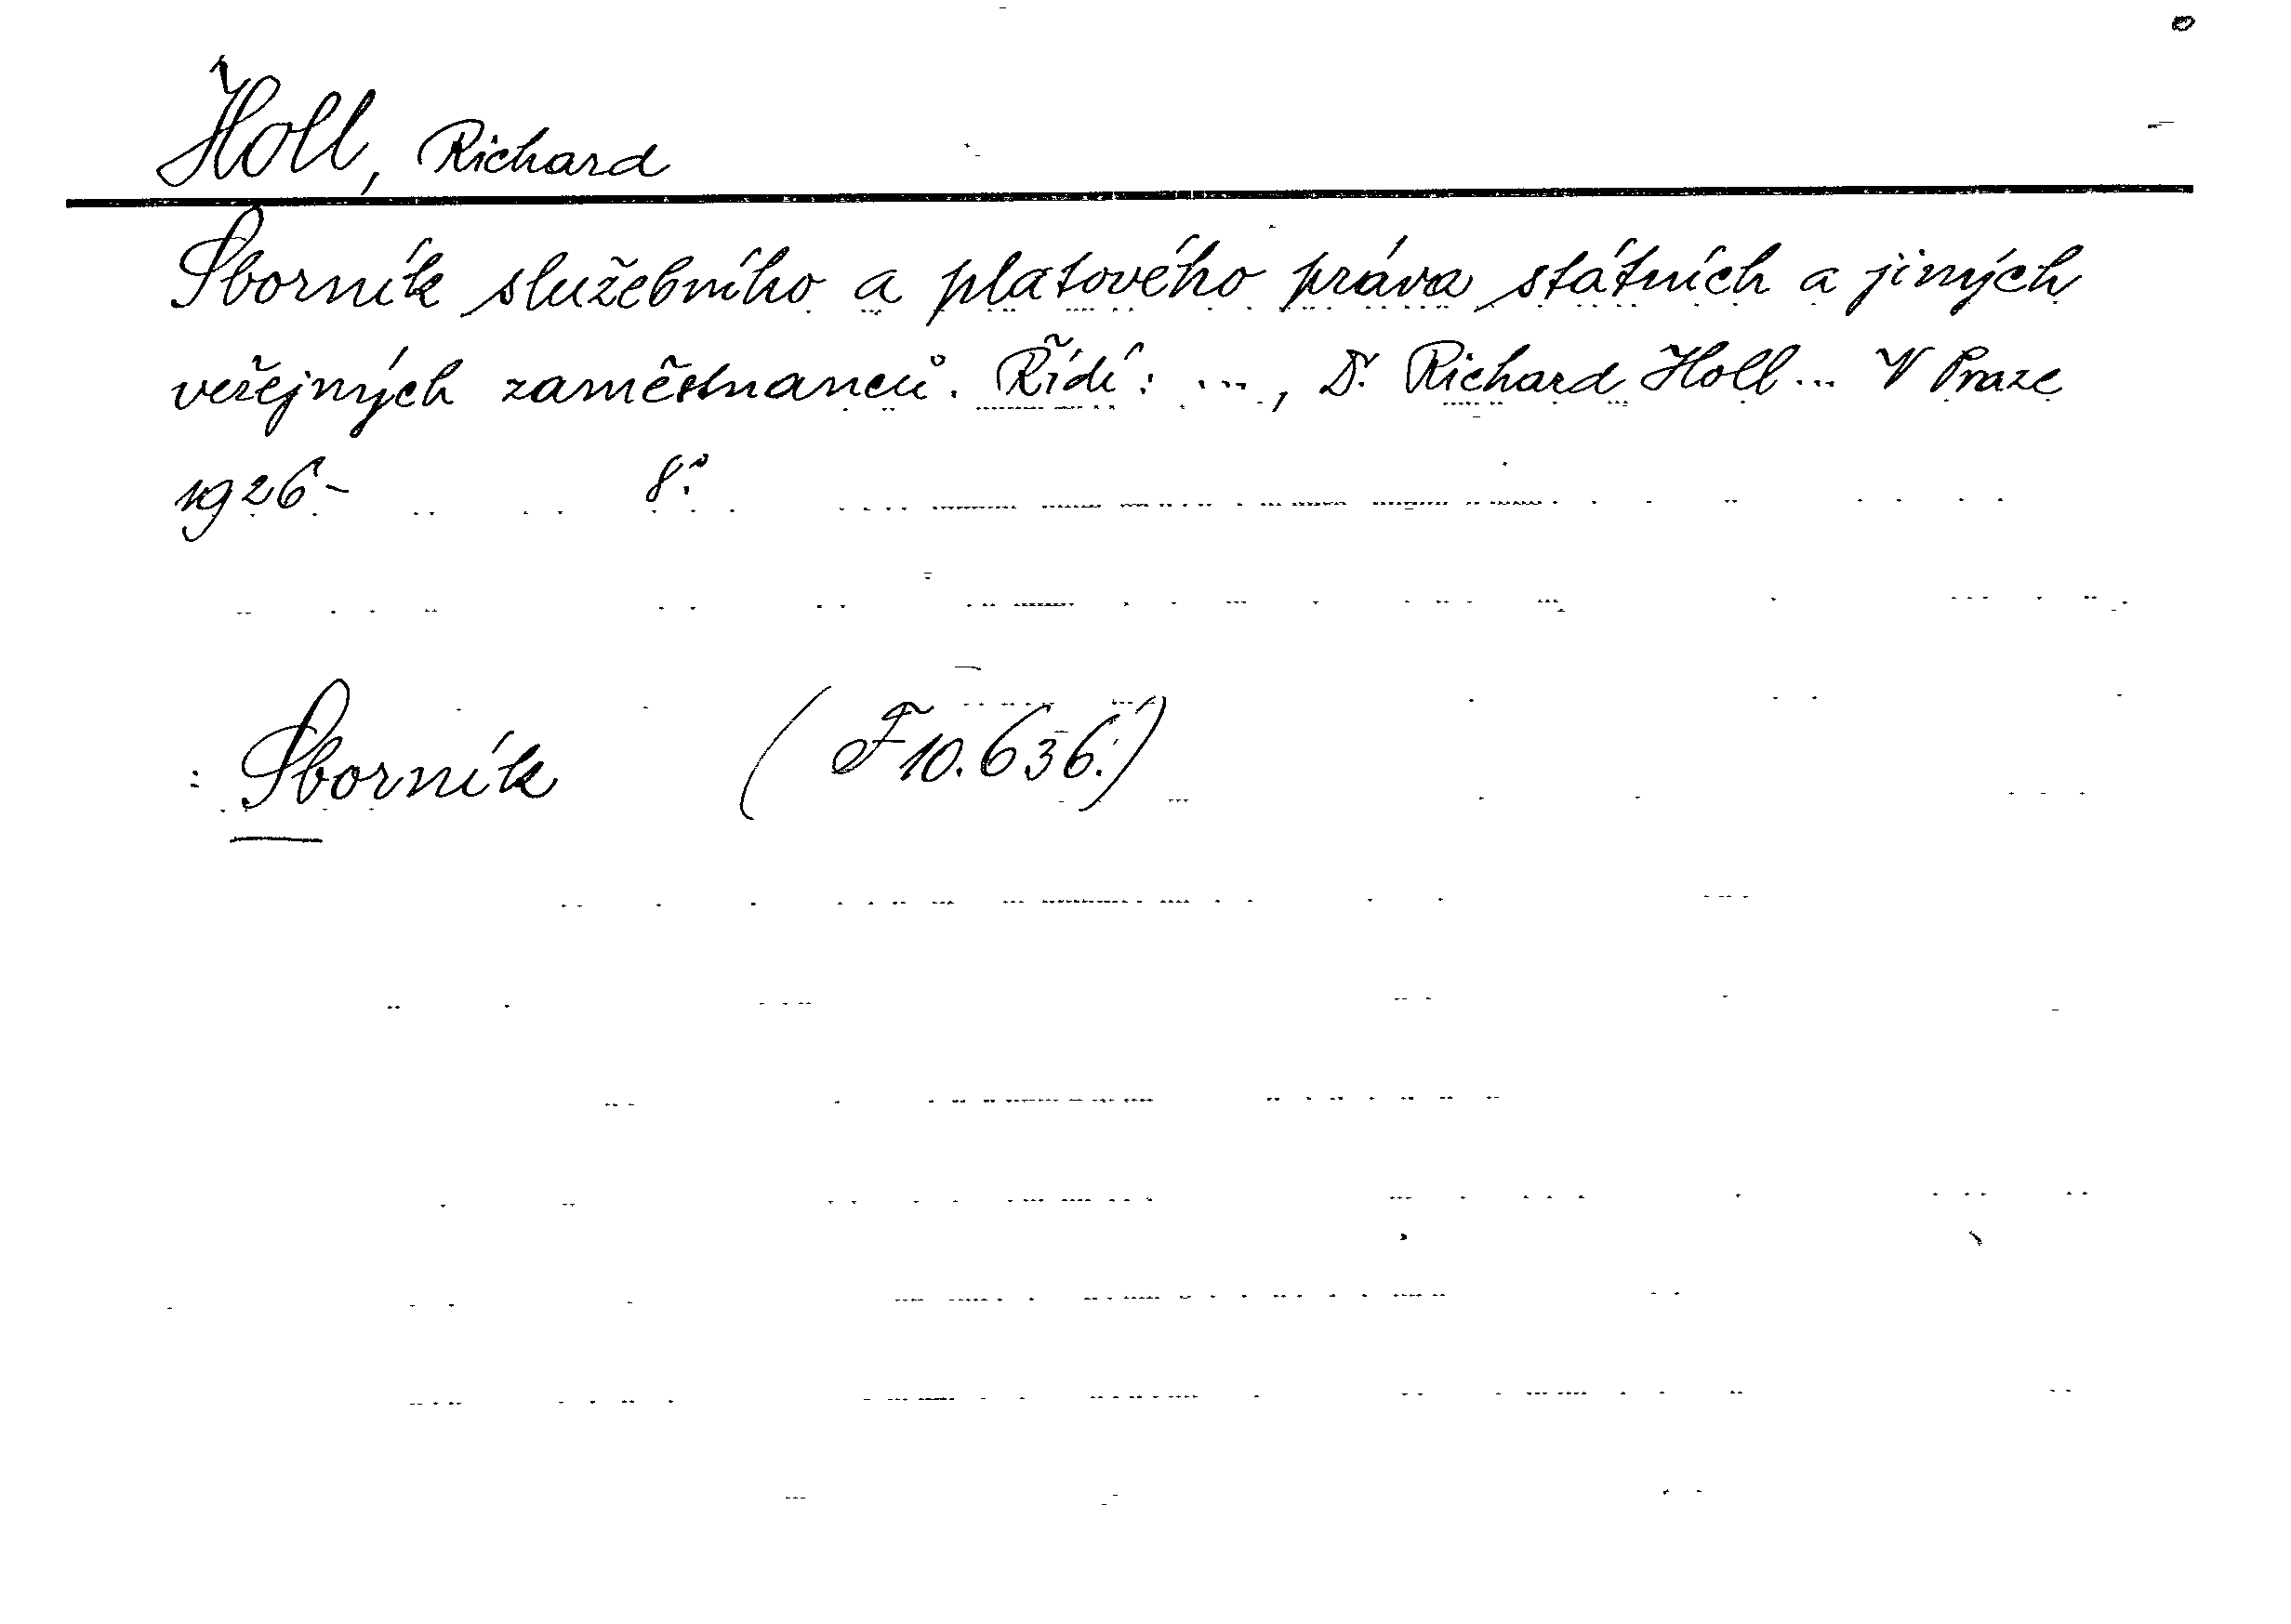 Holl, Richard
Sborník služebního a platového práva státních a jiných
veřejných zaměstnanců. Řídí: ..., Dr. Richard Holl... V Praze
1926- 8°.
: Sborník (F 10.636.)